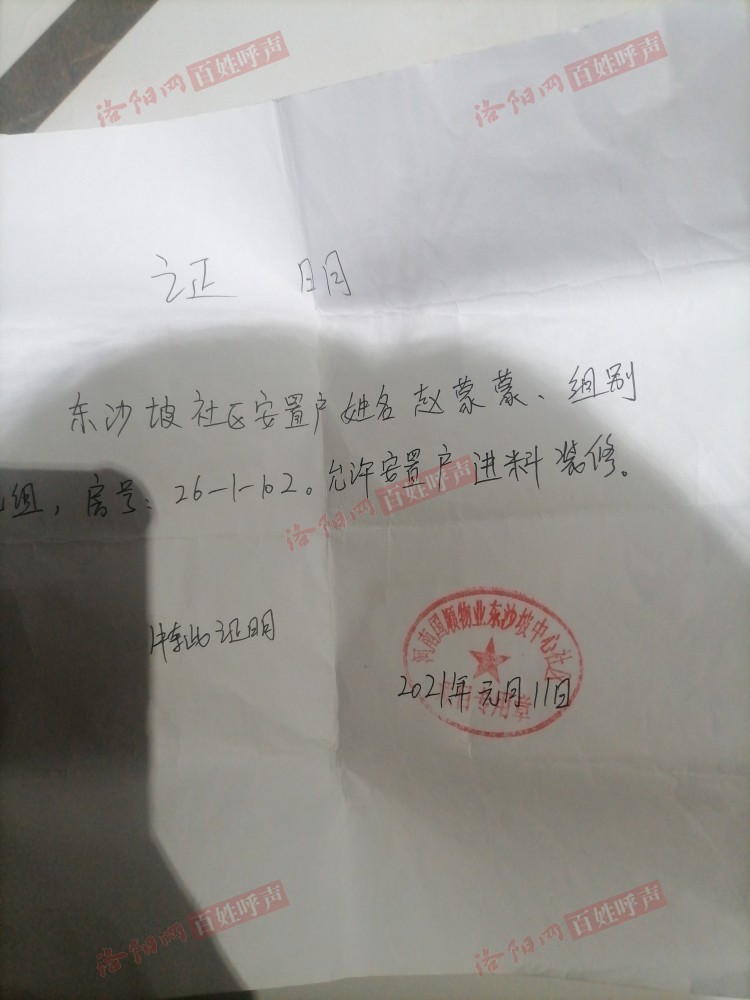 洛阳网 百姓呼声
洛阳网 百姓呼声
证 明
东沙坡社区安置户姓名赵蒙蒙、组别
组,房号:26-1-102。允许安置户进料装修。
洛阳网 百姓呼声
特此证明
河南国顺物业东沙坡中心社区
2021年元月11日
洛阳网 百姓呼声
洛阳网 百姓呼声